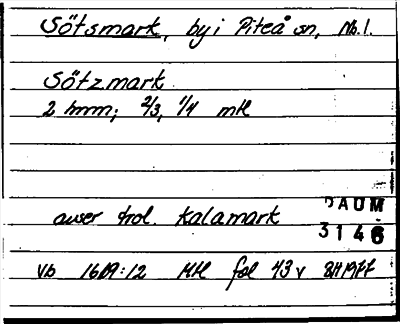 Sötsmark, by i Piteå sn, Nb.l.
Sötzmark
2 hmm; 2/3, 1/4 mtl
avser trol. Kalamark
DAUM
3146
Vb 1609:12 Mtl fol 43 v